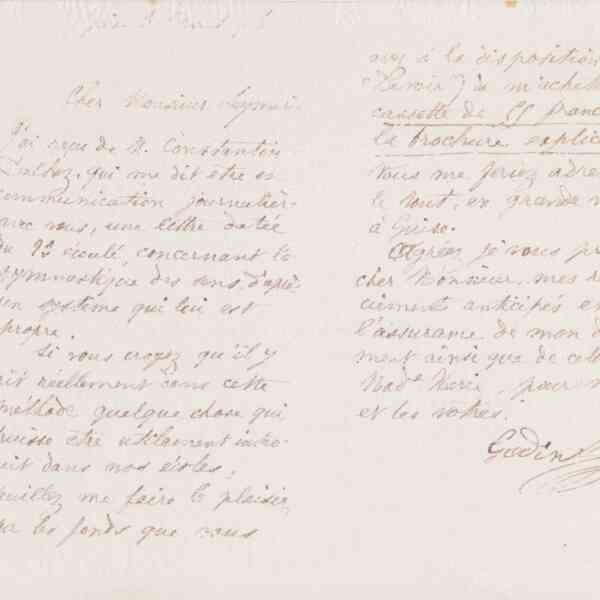 Cher Monsieur Leymarie
J'ai reçu de M. Constantin
qui me dit être en
communication journaliè-
avec vous, une lettre datée
du 23 écoulé, concernant la
gymnastique des sens, d'après
un système qui lui est
propre.
Si vous croyez qu'il y
ait réellement dans cette
méthode quelque chose qui
puisse être utilement intro-
duit dans nos écoles,
veuillez me faire le plaisir
par les fonds que vous
avez à la disposition
m'achet
cassette de 55 franc
la brochure explic
Vous me feriez adre
le tout, en grande
à Guise.
Agréez je vous pr
cher Monsieur, mes re
ciements anticipés e
l'assurance de mon d
ment ainsi que de cel
Made Marie, pour
et les vôtres.
Godin